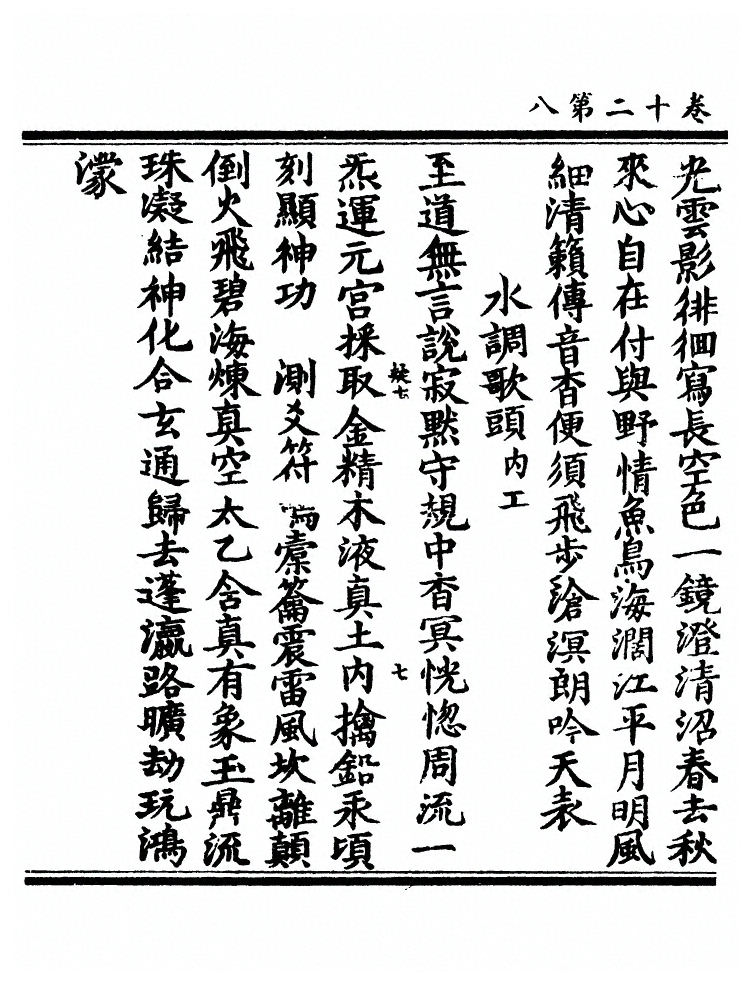 卷十二第八
光雲影徘徊寫長空色一鏡澄清沼春去秋
來心自在付與野情魚鳥海濶江平月明風
細清籟傳音杳便須飛步滄溟朗吟天表
水調歌頭内工
至道無言說寂默守䂓中杳冥恍惚周流一
疑七
七
炁運元宫採取金精木液真土内擒鉛汞頃
刻顯神功　測爻符 橐籥震雷風坎離顛
倒火飛碧海煉真空太乙含真有象玉鼎流
珠凝結神化合玄通歸去蓬瀛路曠劫玩鴻
濛